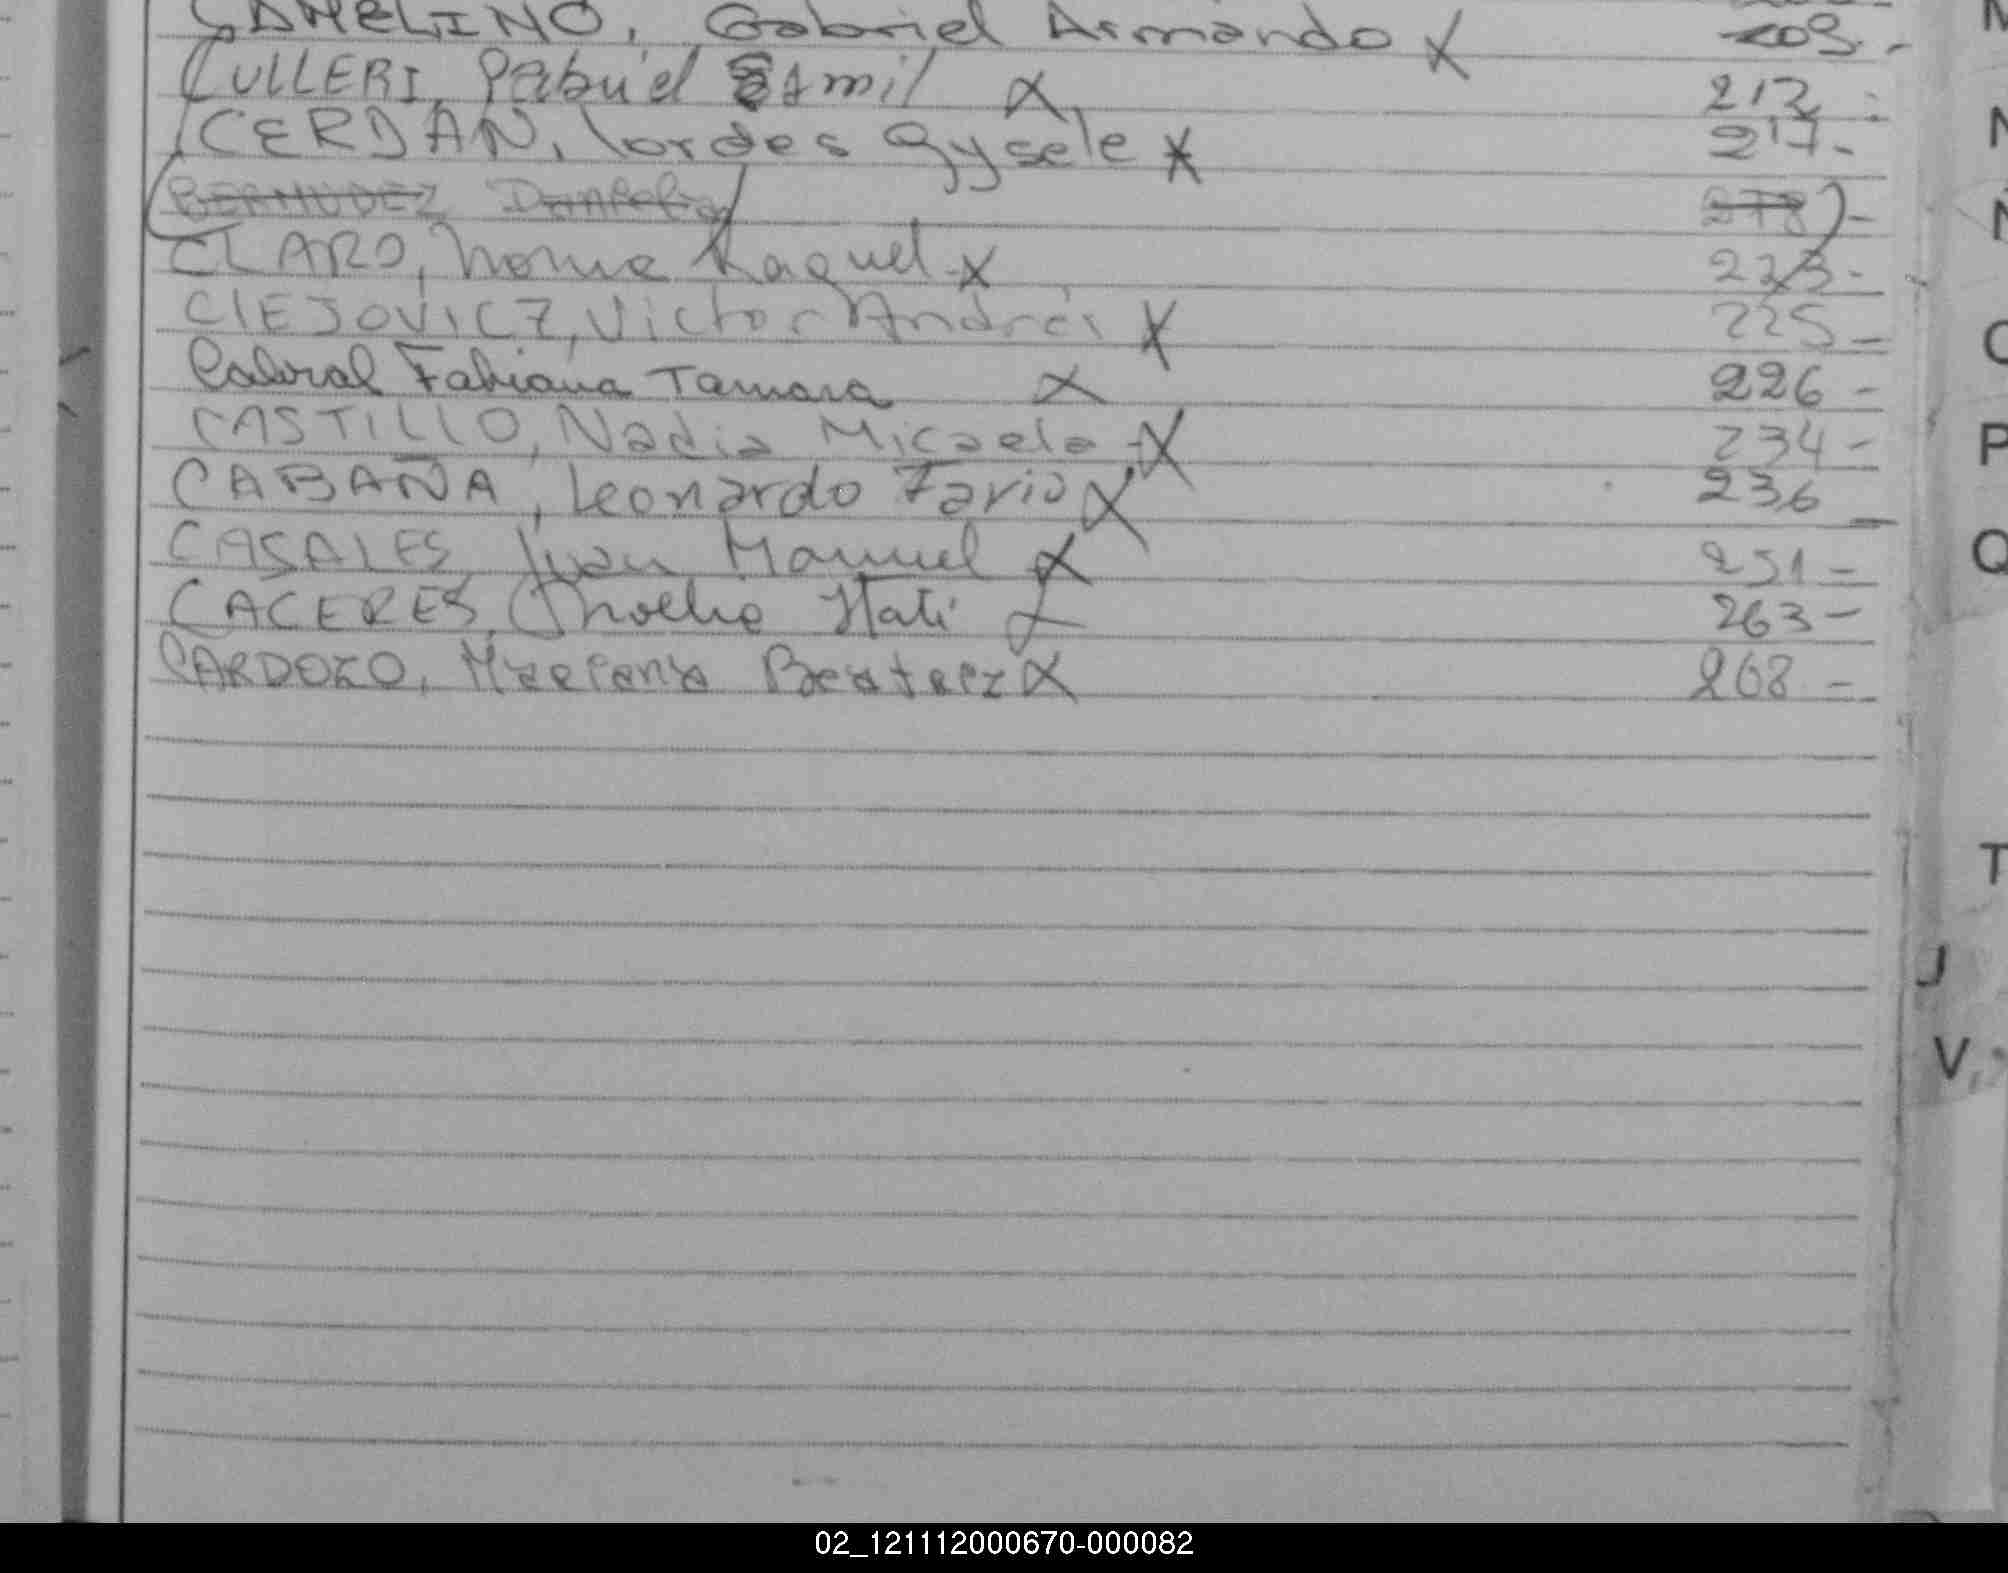 CAMELINO, Gabriel Armando X 209.-
CULLERI, Gabriel Amil X 212.-
CERDAN, lordes Gysele X 217-
BERMUDEZ 218)-
CLARO, Norma Raquel-X 223-
CIEJOVICZ, Victor Andrés X 225-
Cabral Fabiana Tamara X 226-
CASTILLO, Nadia Micaela-X 234-
CABAÑA, Leonardo Favio X 236-
CASALES, Juan Manuel X 251-
CACERES, Itati X 263-
CARDOZO, Macarena Beatriz X 268-
N
N
O
P
Q
T
J
V
02_121112000670-000082